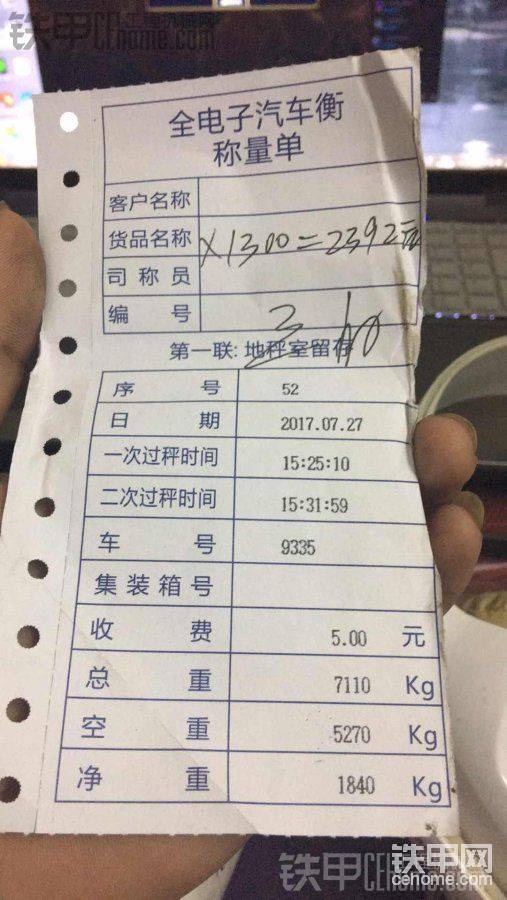 铁甲工程机械网
CEhome.com
全电子汽车衡
称量单
客户名称
货品名称 ×1300=2392元
司称员
编号
第一联: 地秤室留存
序号 52
日期 2017.07.27
一次过秤时间 15:25:10
二次过秤时间 15:31:59
车号 9335
集装箱号
收费 5.00 元
总重 7110 Kg
空重 5270 Kg
净重 1840 Kg
铁甲网
cehome.com
铁甲CEhome.com